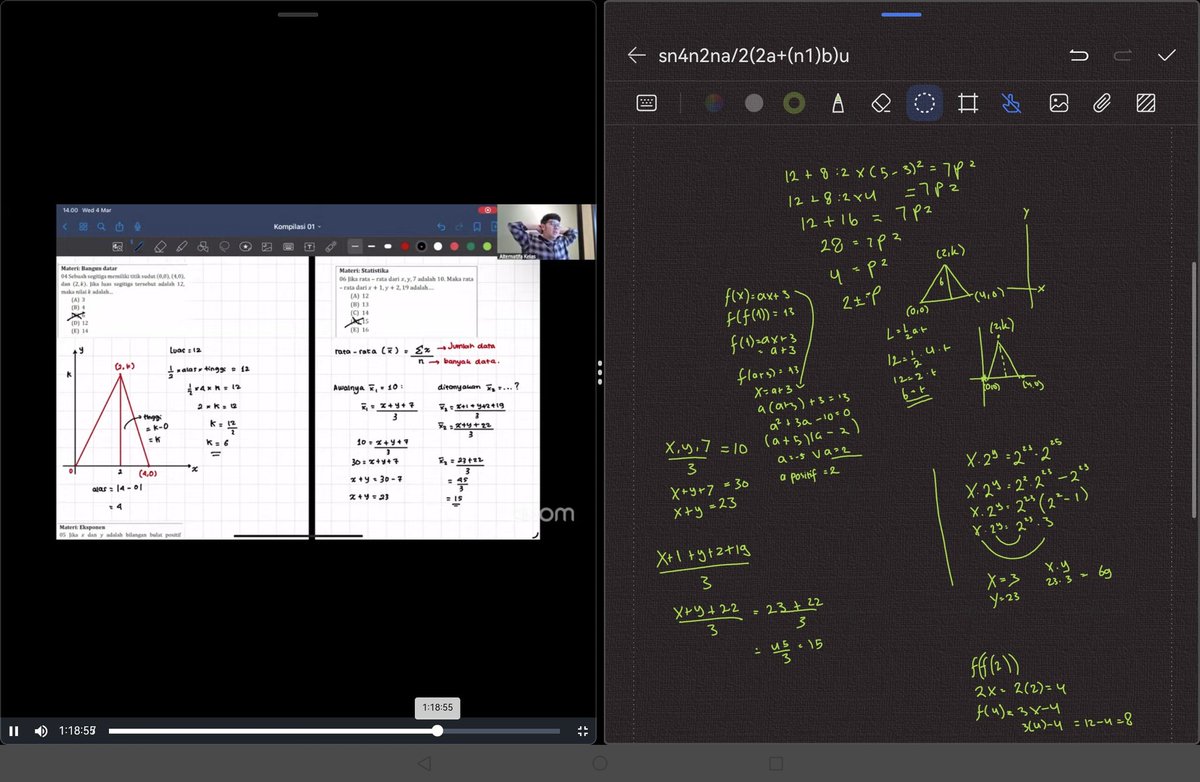 14.00 Wed 4 Mar
Kompilasi 01
Alternatifa Kelas
Materi: Bangun datar
04 Sebuah segitiga memiliki titik sudut (0,0), (4,0),
dan (2, k). Jika luas segitiga tersebut adalah 12,
maka nilai k adalah...
(A) 3
(B) 4
(D) 12
(E) 14
y
K
(2, K)
tinggi
= K-0
= K
0
2
(4,0)
x
alas = |4 - 0|
= 4
Luas = 12
1/2 × alas × tinggi = 12
1/2 × 4 × K = 12
2 × K = 12
K = 12/2
K = 6
Materi: Eksponen
05 Jika x dan y adalah bilangan bulat positif
Materi: Statistika
06 Jika rata – rata dari x, y, 7 adalah 10. Maka rata
– rata dari x + 1, y + 2, 19 adalah...
(A) 12
(B) 13
(C) 14
15
(E) 16
rata - rata (x̄) = Σx / n
→ Jumlah data
→ banyak data.
Awalnya x̄₁ = 10 :
x̄₁ = x + y + 7 / 3
10 = x + y + 7 / 3
30 = x + y + 7
x + y = 30 - 7
x + y = 23
ditanyakan x̄₂ = ... ?
x̄₂ = x+1 + y+2 +19 / 3
x̄₂ = x+y + 22 / 3
x̄₂ = 23 + 22 / 3
= 45 / 3
= 15
om
1:18:55
1:18:55
sn4n2na/2(2a+(n1)b)u
12 + 8 : 2 × (5 - 3)² = 7p²
12 + 8 : 2 × 4 = 7p²
12 + 16 = 7p²
28 = 7p²
4 = p²
2 ± = p
f(x) = ax + 3
f(f(1)) = 13
f(1) = ax + 3
= a + 3
f(a+3) = 13
x = a + 3
a(a+3) + 3 = 13
a² + 3a - 10 = 0
(a + 5)(a - 2)
a = -5 V a = 2
a positif = 2
y
x
(2,k)
(4,0)
(0,0)
L = 1/2 a.t
12 = 1/2 . 4 . t
12 = 2 . t
6 = t
(2,k)
(0,0)
(4,0)
x,y,7 / 3 = 10
x + y + 7 = 30
x + y = 23
x+1 + y+2+19 / 3
x + y + 22 / 3 = 23 + 22 / 3
= 45 / 3 = 15
x . 2ʸ = 2²⁵ - 2²⁵
x . 2ʸ = 2² . 2²³ - 2²³
x . 2ʸ = 2²³ (2² - 1)
x . 2ʸ = 2²³ . 3
x = 3
y = 23
x . y
23 . 3 = 69
f(f(2))
2x = 2(2) = 4
f(4) = 3x - 4
3(4) - 4 = 12 - 4 = 8